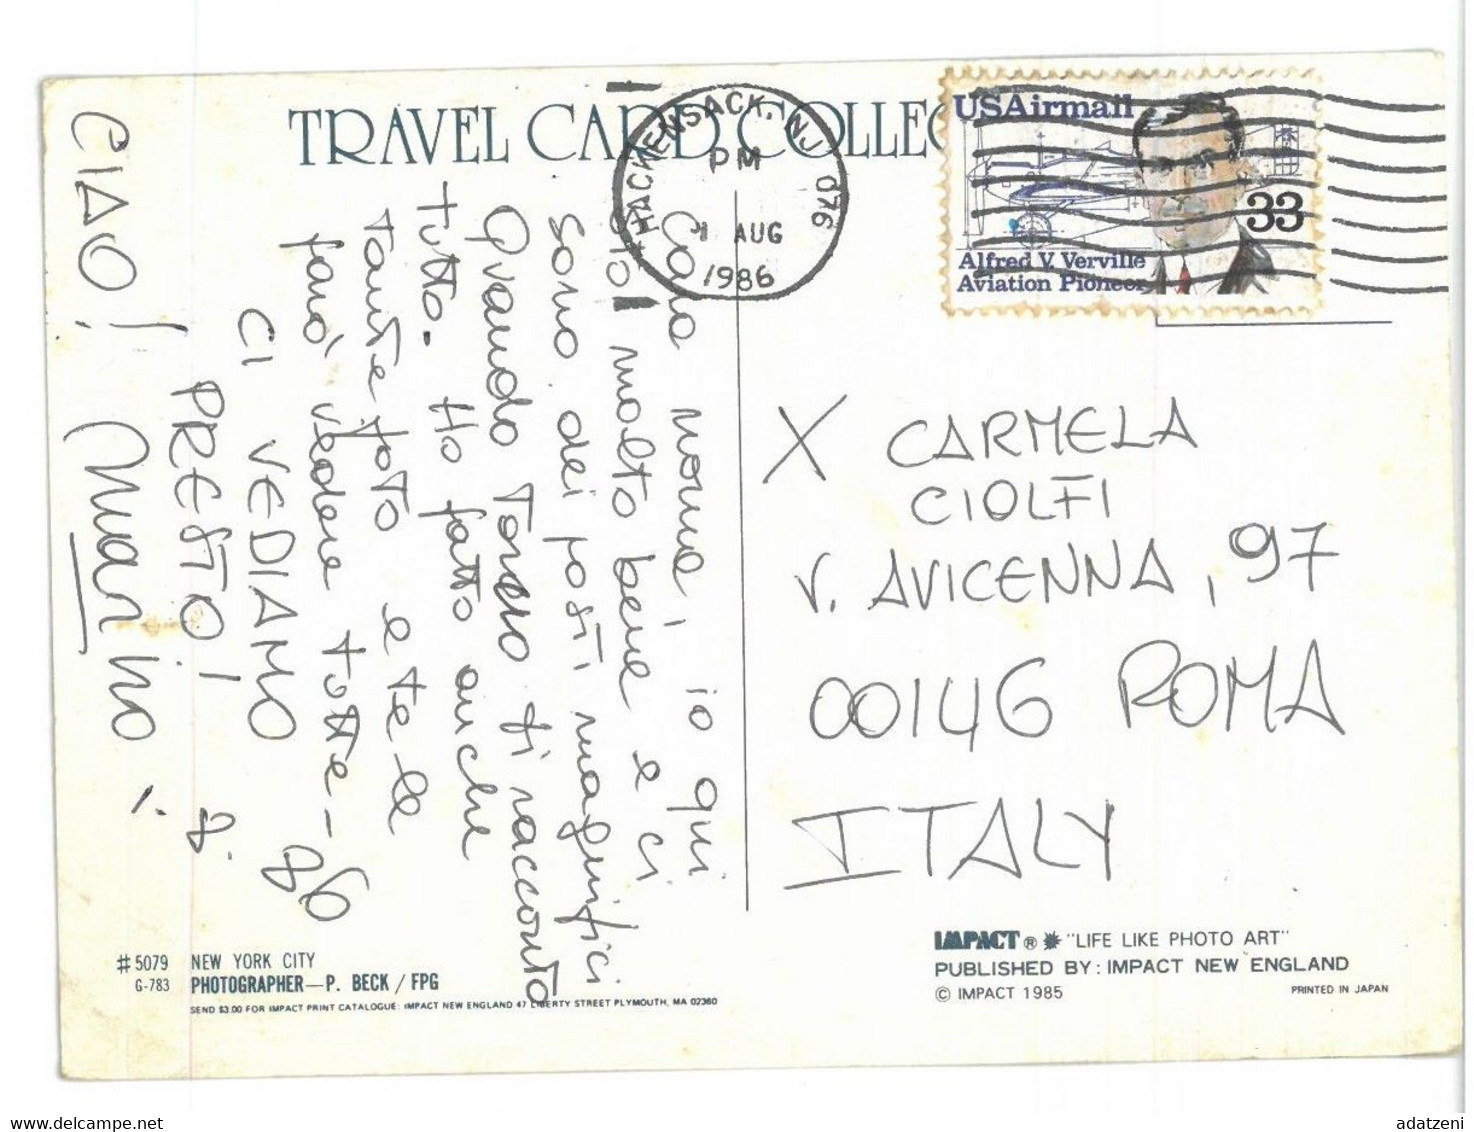 TRAVEL CARD COLLEC
HACKENSACK, NJ 076
PM
1 AUG
1986
USAirmail
33
Alfred V. Verville
Aviation Pioneer
Cara nonna, io qui
sto molto bene e ci
sono dei posti magnifici
Quando torno ti racconto
tutto. Ho fatto anche
tante foto e te le
farò vedere tutte-
CI VEDIAMO 86
PRESTO! 8.
CIAO!
X CARMELA
CIOLFI
V. AVICENNA, 97
00146 ROMA
ITALY
#5079 NEW YORK CITY
G-783 PHOTOGRAPHER—P. BECK / FPG
SEND $3.00 FOR IMPACT PRINT CATALOGUE: IMPACT NEW ENGLAND 47 LIBERTY STREET PLYMOUTH, MA 02360
IMPACT ® "LIFE LIKE PHOTO ART"
PUBLISHED BY: IMPACT NEW ENGLAND
© IMPACT 1985
PRINTED IN JAPAN
adatzeni